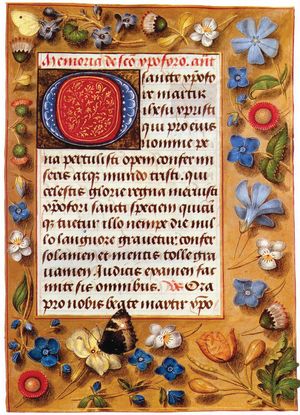 Memoria de sco xpoforo. ant
O sancte xpofo
re martir
ihesu xpristi
qui pro eius
nomine pe
na pertulisti opem confer mi
seris atqz mundo tristi. qui
celestis glorie regna meruisti
xpofori sancti speciem quicūqz
tuetur illo nempe die nul
lo languore grauetur, confer
solamen et mentis tolle gra
uamen. Iudicis examen fac
mite sis omnibus. Vs Ora
pro nobis beate martir xpo